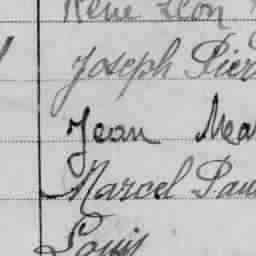 René Léon
Joseph Pier
Jean Mar
Marcel Pau
Louis